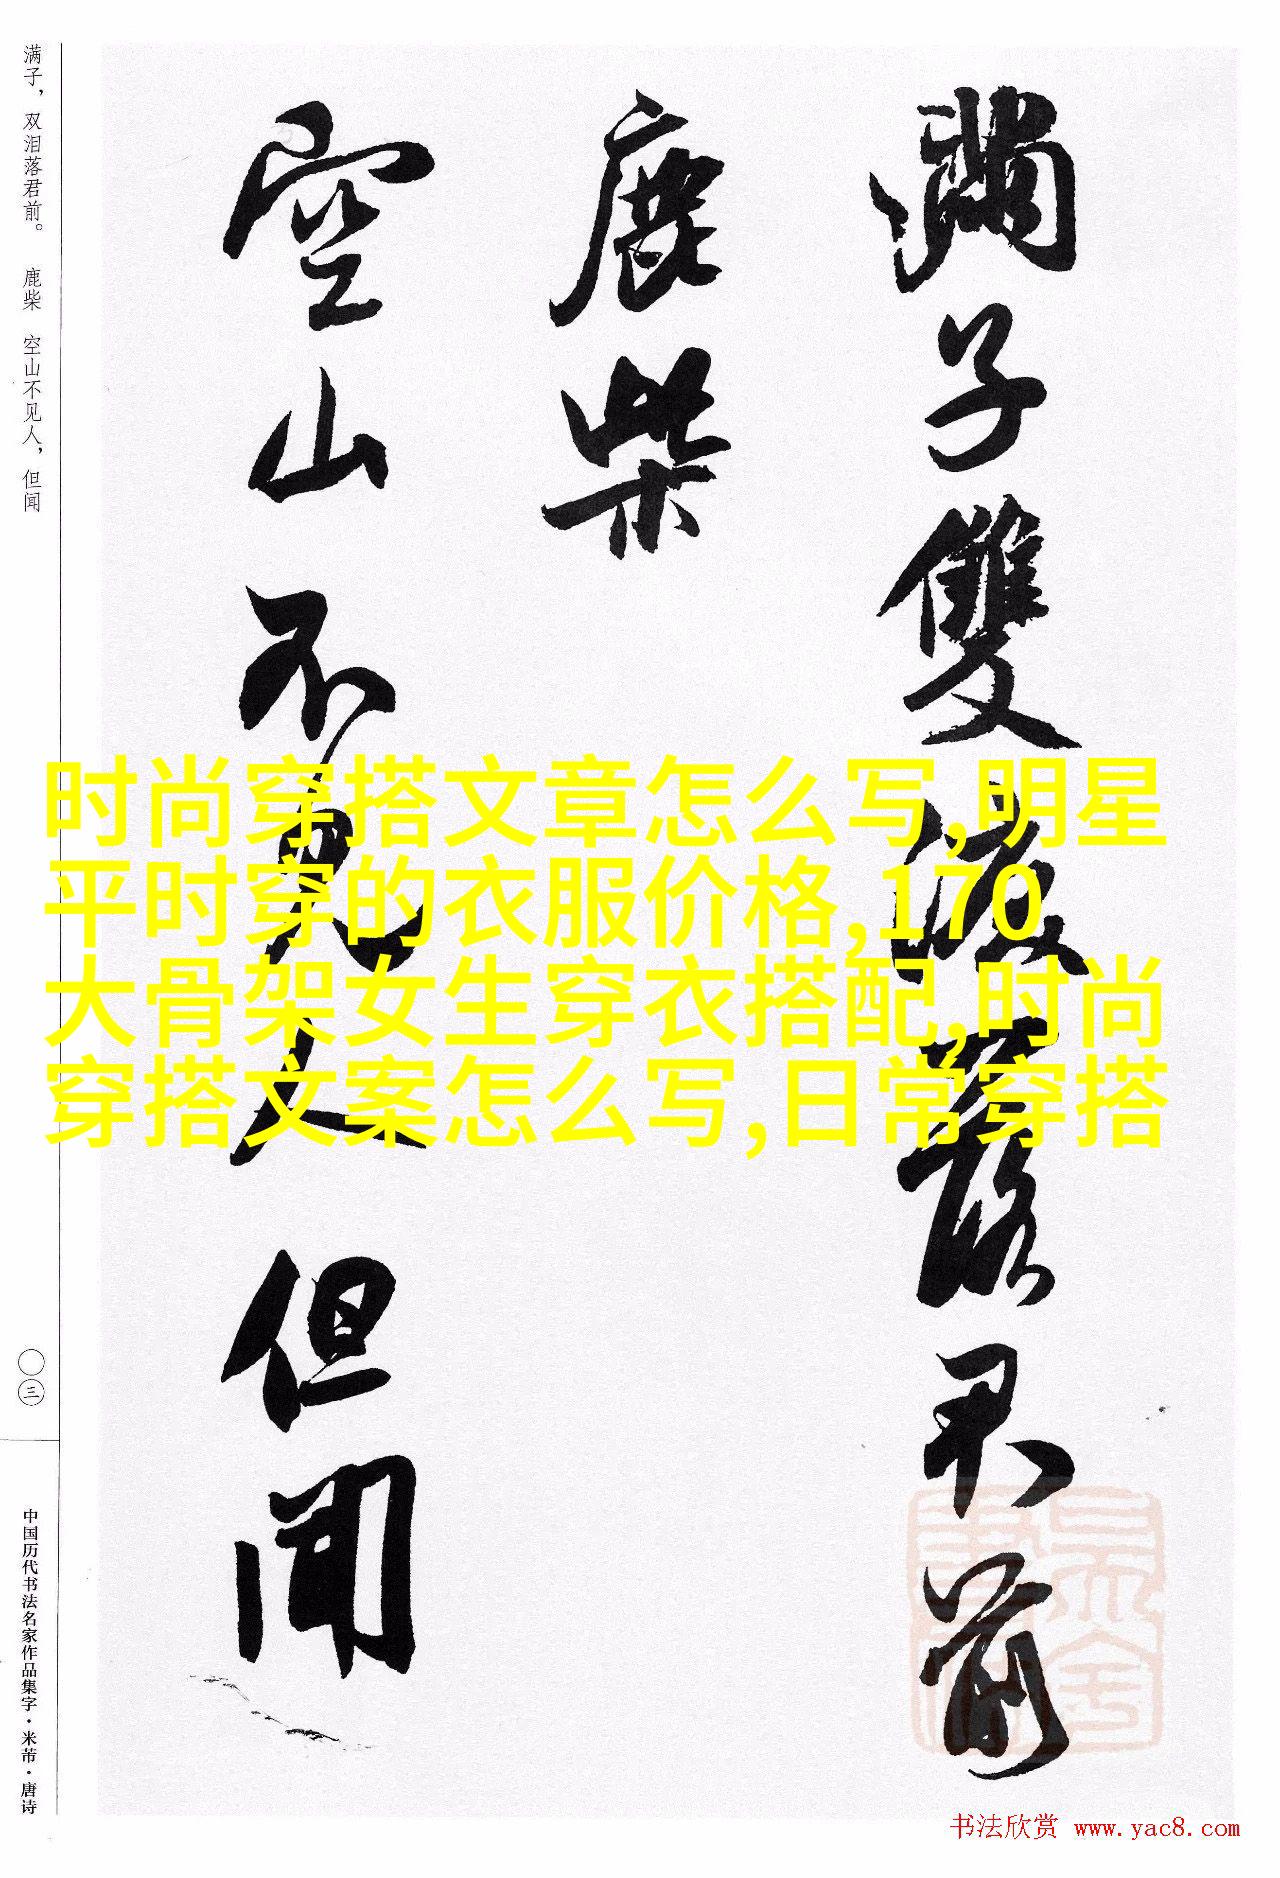 满子，双泪落君前。 鹿柴 空山不见人，但闻
滿子雙淚落君前
鹿柴
空山不見人但聞
时尚穿搭文章怎么写,明星
平时穿的衣服价格,170
大骨架女生穿衣搭配,时尚
穿搭文案怎么写,日常穿搭
〇三
中国历代书法名家作品集字·米芾·唐诗
书法欣赏 www.yac8.com